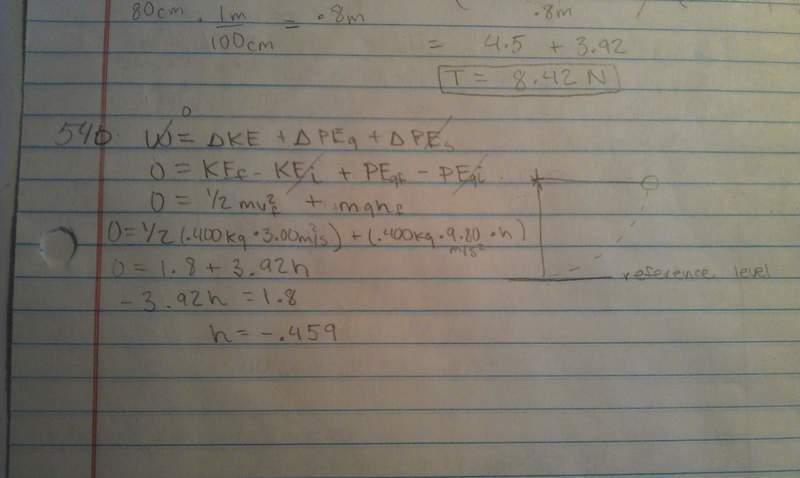 80cm · 1m/100cm = .8m
.8m
= 4.5 + 3.92
T = 8.42 N
54b. W = ΔKE + ΔPEg + ΔPEs
0
0 = KEf - KEi + PEgf - PEgi
0 = 1/2 mvf² + mghf
0 = 1/2 (.400kg · 3.00m/s²) + (.400kg · 9.80 m/s² · h)
0 = 1.8 + 3.92h
reference level
- 3.92h = 1.8
h = -.459